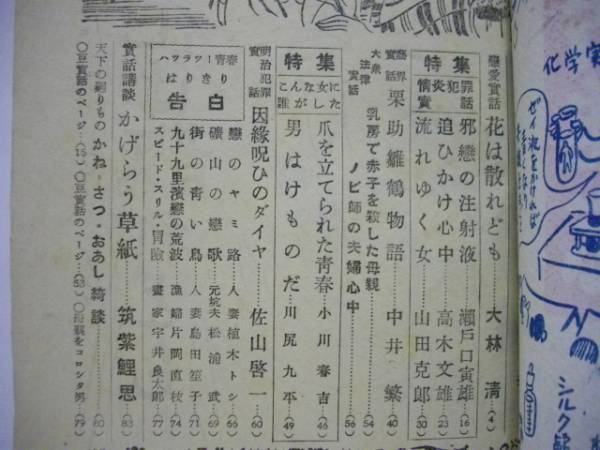 戀愛實話 花は散れども……大林清…(4)
特集 情炎犯罪實話
邪戀の注射液……瀬戸口寅雄…(16)
追ひかけ心中……高木文雄…(23)
流れゆく女……山田克郎…(30)
藝界實話 栗助雛鶴物語……中井繁…(40)
大衆法律實話
乳房で赤子を殺した母親……(54)
ノビ師の夫婦心中……(56)
特集 こんな女に誰がした
爪を立てられた青春……小川春吉…(46)
男はけものだ……川尻九平…(49)
明治犯罪實話 因緣呪ひのダイヤ……佐山啓一…(60)
青春ハツラツはりきり告白
戀のヤミ路……人妻 植木トシ…(66)
礦山の戀歌……元坑夫 松浦武…(69)
街の青い鳥……人妻 島田笙子…(71)
九十九里濱戀の荒波……漁婦 片岡直枝…(74)
スピード・スリル・冒險……畫家 宇井良太郎…(77)
實話講談 かげらう草紙……筑紫鯉思…(83)
天下の廻りもの かね・さつ・おあし綺談……(80)
〇豆實話のページ…(15)〇豆實話のページ…(53)〇母親をコロシタ男…(79)
化学実
ガイ液をかければ
シルク